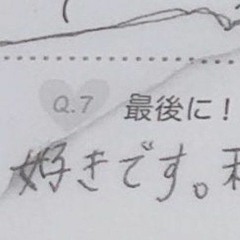 Q.7 最後に!
好きです。